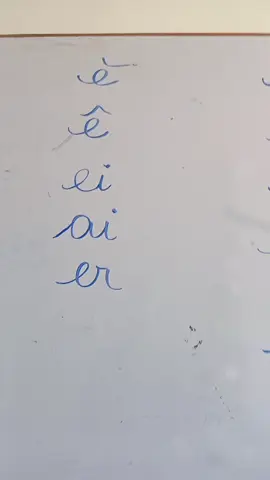 ĕ
ê
ei
ai
er